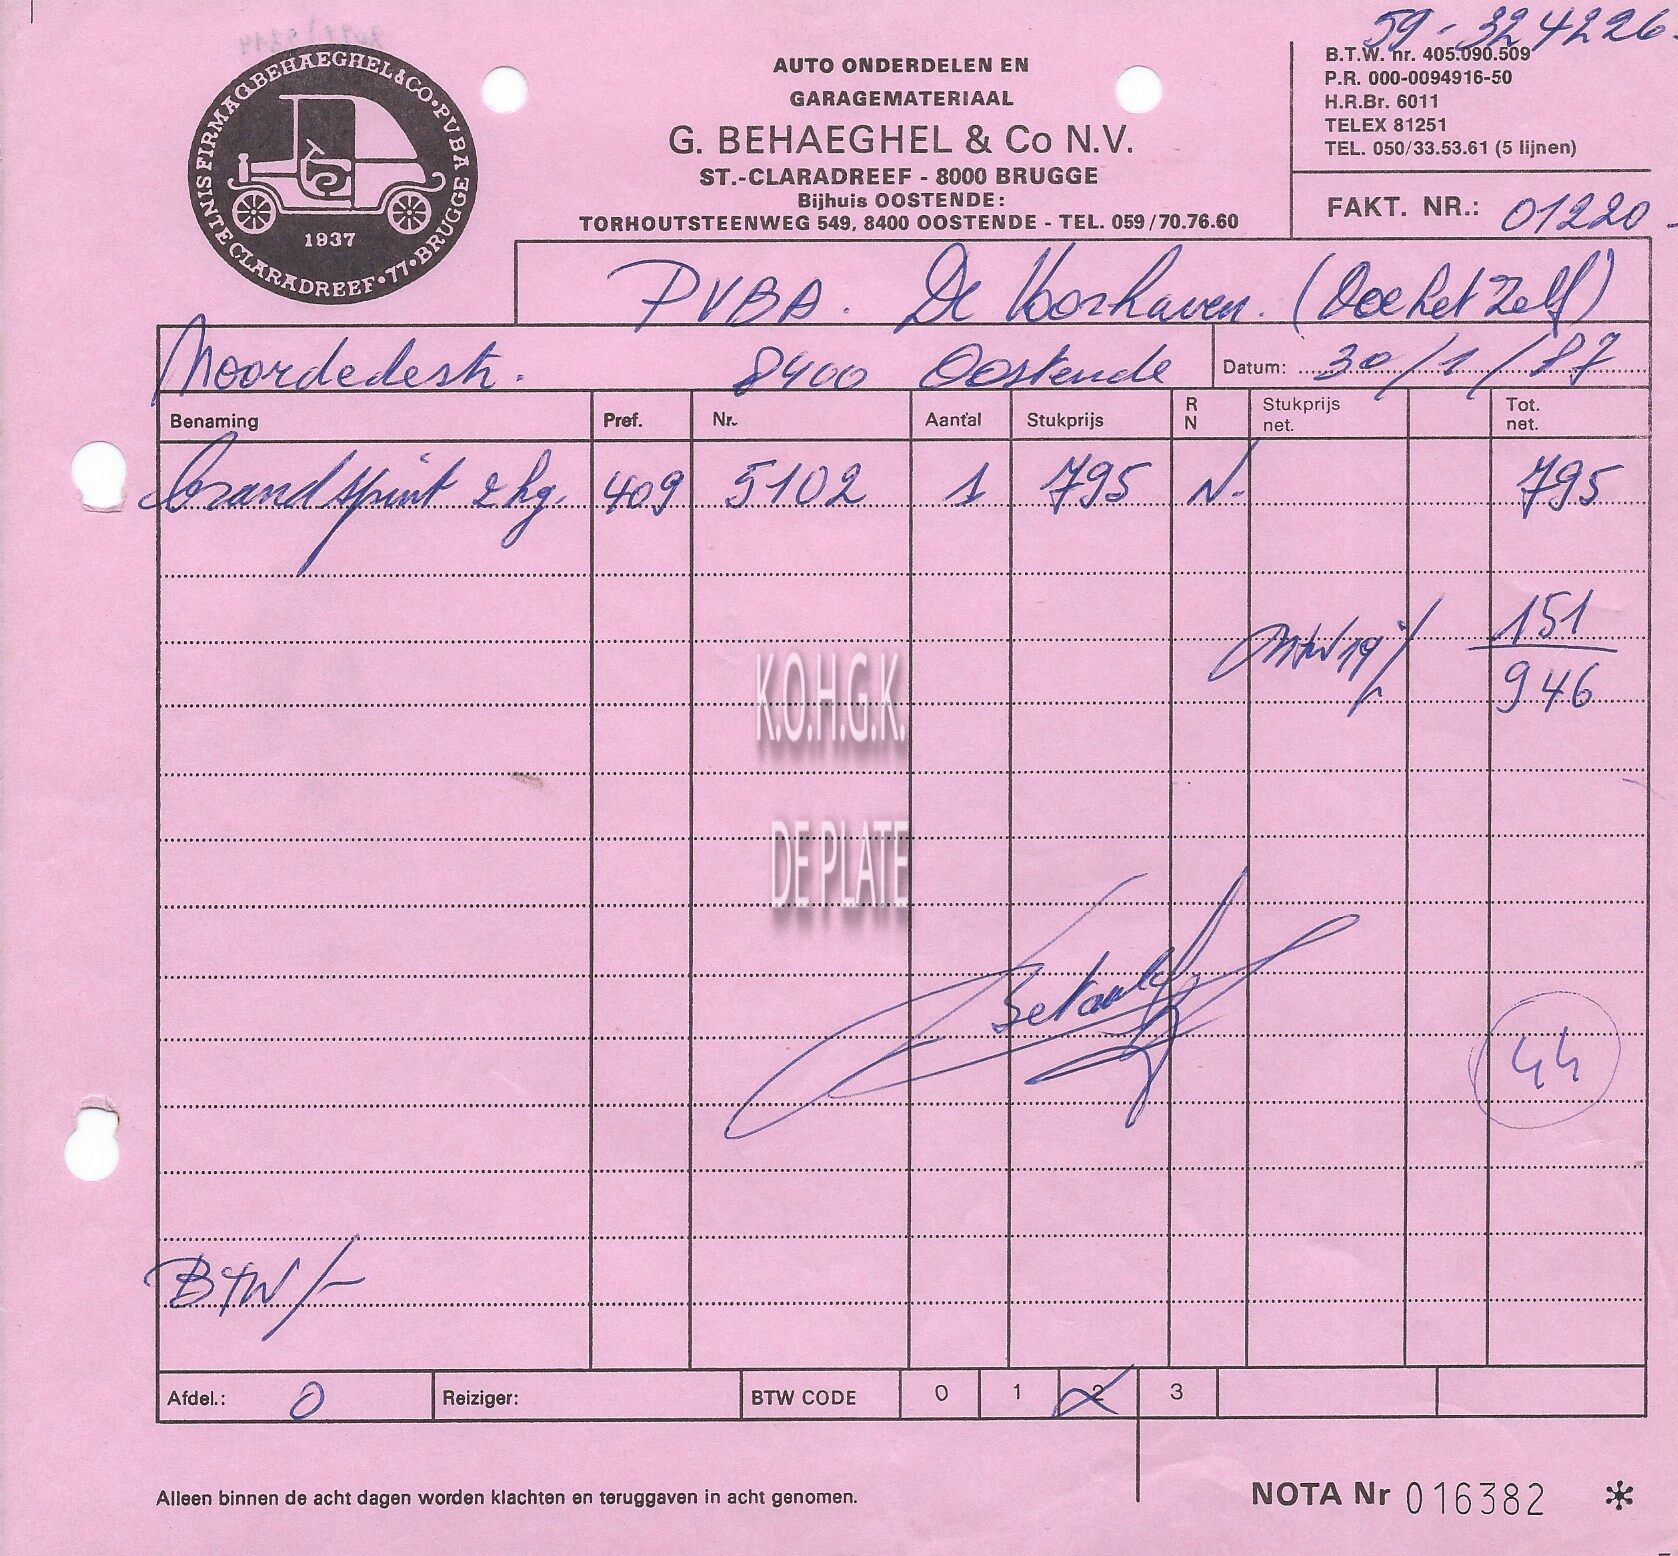 59-324226.
SINTE CLARADREEF·77·BRUGGE
1937
AUTO ONDERDELEN EN
GARAGEMATERIAAL
G. BEHAEGHEL & Co N.V.
ST.-CLARADREEF - 8000 BRUGGE
Bijhuis OOSTENDE:
TORHOUTSTEENWEG 549, 8400 OOSTENDE - TEL. 059/70.76.60
B.T.W. nr. 405.090.509
P.R. 000-0094916-50
H.R.Br. 6011
TELEX 81251
TEL. 050/33.53.61 (5 lijnen)
FAKT. NR.: 01220
PVBA. De Voorhaven. (Doe het Zelf)
8400 Oostende Datum: 30/1/87
Benaming Pref. Nr. Aantal Stukprijs R N Stukprijs net. Tot. net.
409 5102 1 795 N. 795
BTW 19% 151
946
K.O.H.G.K.
DE PLATE
Betaald
44
BTW/-
Afdel.: 0 Reiziger: BTW CODE 0 1 2 3
Alleen binnen de acht dagen worden klachten en teruggaven in acht genomen.
NOTA Nr 016382 *